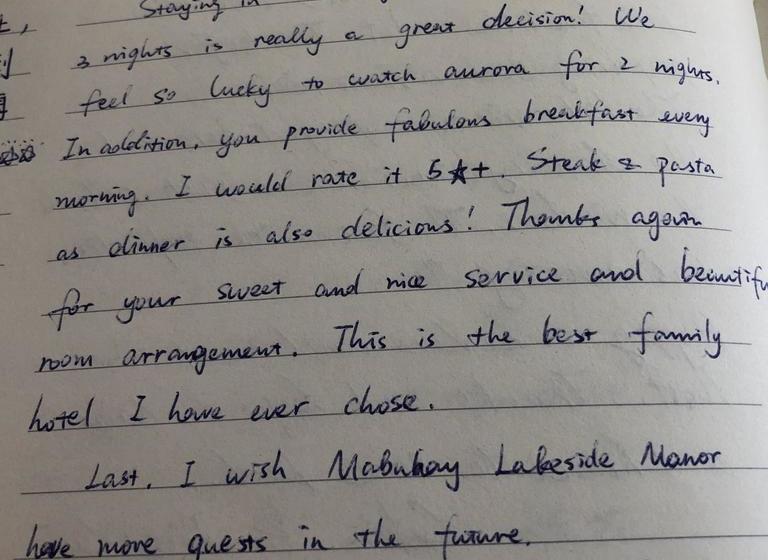 Staying in
3 nights is really a great decision! We
feel so lucky to watch aurora for 2 nights.
In addition, you provide fabulous breakfast every
morning. I would rate it 5★+. Steak & pasta
as dinner is also delicious! Thanks again
for your sweet and nice service and beautifu
room arrangement. This is the best family
hotel I have ever chose.
Last, I wish Mabuhay Lakeside Manor
have more guests in the future.